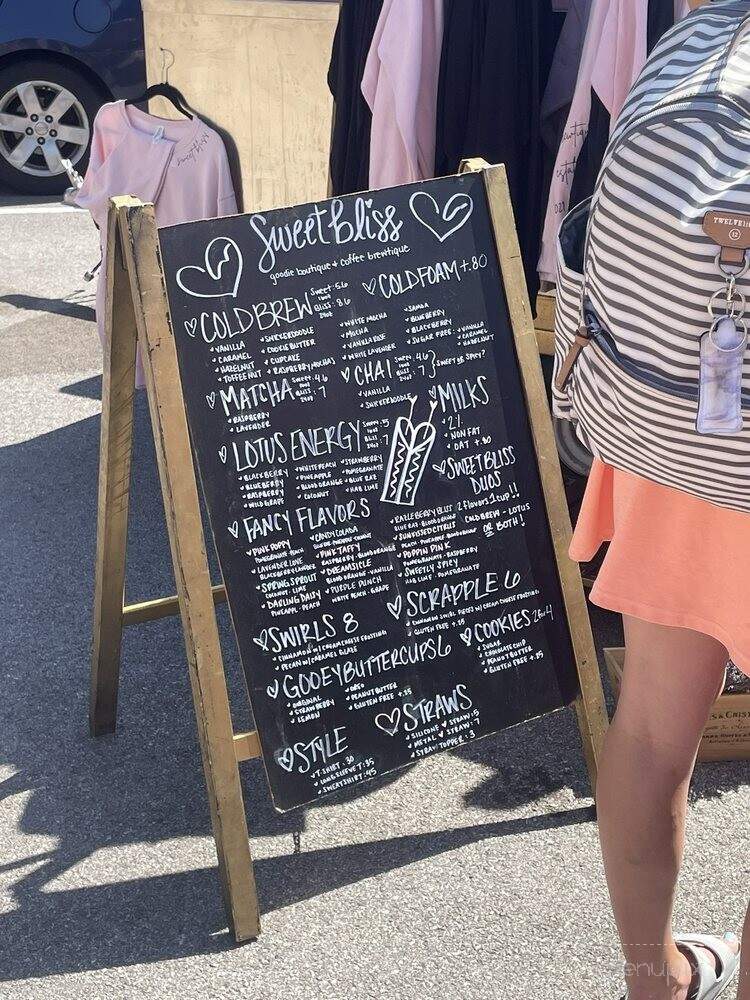 Sweet Bliss
goodie boutique + coffee brewtique
COLD BREW
Sweet: 5.6
16oz
Bliss: 8.6
24oz
VANILLA
CARAMEL
HAZELNUT
TOFFEE NUT
SNICKERDOODLE
COOKIE BUTTER
CUPCAKE
RASPBERRY MOCHA
WHITE MOCHA
MOCHA
VANILLA ROSE
WHITE LAVENDER
COLD FOAM +.80
BLUEBERRY
BLACKBERRY
SUGAR FREE:
VANILLA
CARAMEL
HAZELNUT
MATCHA
Sweet: 4.6
16oz
24oz : 7
RASPBERRY
LAVENDER
CHAI
Sweet: 4.6
16oz
24oz : 7
SWEET OR SPICY?
VANILLA
SNICKERDOODLE
MILKS
2%
NON FAT
OAT +.90
LOTUS ENERGY
Sweet : 5
16oz
Bliss : 7
24oz
BLACKBERRY
BLUEBERRY
RASPBERRY
WILD GRAPE
WHITE PEACH
PINEAPPLE
BLOOD ORANGE
COCONUT
STRAWBERRY
POMEGRANATE
BLUE RAZ
HAB LIME
SWEET BLISS
DUOS
2 flavors 1 cup!!
COLD BREW - LOTUS
OR BOTH!
FANCY FLAVORS
PINK POPPY
POMEGRANATE - PEACH
LAVENDER LOVE
BLACKBERRY LAVENDER
SPRING SPROUT
COCONUT - LIME
DARLING DAISY
PINEAPPLE - PEACH
CANDY COLADA
PINK TAFFY
RASPBERRY - BLOOD ORANGE
DREAMSICLE
BLOOD ORANGE - VANILLA
PURPLE PUNCH
WHITE PEACH - GRAPE
RAZLEBERRY BLISS
BLUE RAZ - BLOOD ORANGE
SUNKISSED CITRUS
PEACH - PINEAPPLE - BLOOD ORANGE
POPPIN PINK
POMEGRANATE - RASPBERRY
SWEETLY SPICY
HAB LIME - POMEGRANATE
SCRAPPLE 6
CINNAMON SWIRL PIECES W/ CREAM CHEESE FROSTING
GLUTEN FREE +.25
SWIRLS 8
CINNAMON W/ CREAM CHEESE FROSTING
PECAN W/ CARAMEL GLAZE
COOKIES 2 for 4
SUGAR
CHOCOLATE CHIP
PEANUT BUTTER
GLUTEN FREE +.25
GOOEY BUTTER CUPS 6
ORIGINAL
STRAWBERRY
LEMON
OREO
PEANUT BUTTER
GLUTEN FREE +.25
STRAWS
SILICONE STRAW : 5
METAL STRAW : 7
STRAW TOPPER : 3
STYLE
T-SHIRT : 30
LONG SLEEVE T : 35
SWEATSHIRT : 45
sweet bliss
TWELVElittle
12